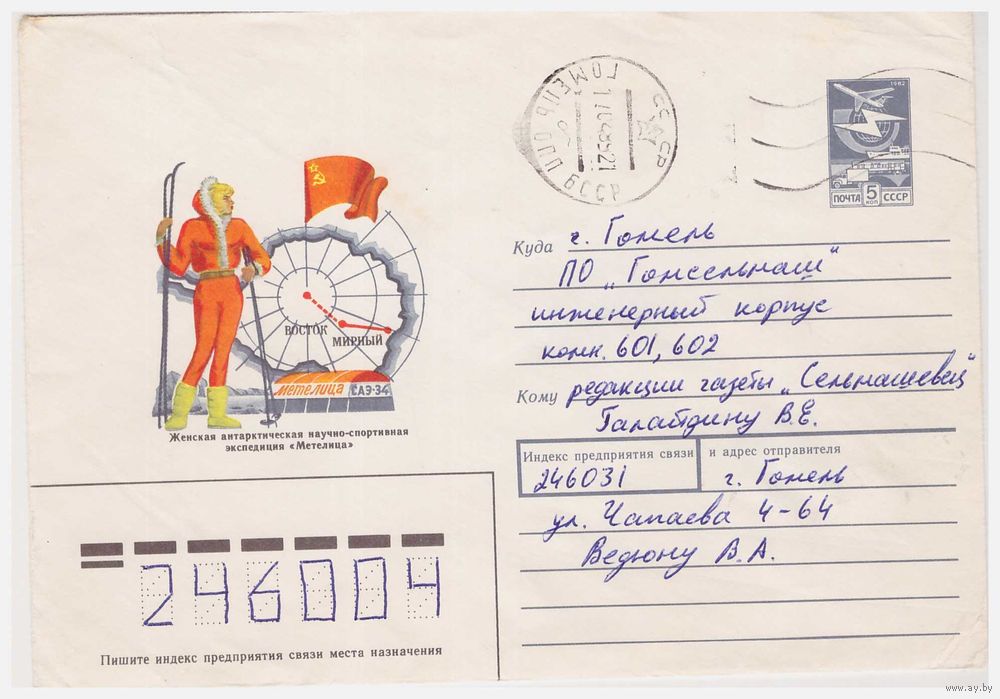 СССР
ГОМЕЛЬ
БССР
1982
ПОЧТА 5 КОП СССР
ВОСТОК
МИРНЫЙ
Метелица САЭ-34
Женская антарктическая научно-спортивная
экспедиция «Метелица»
Куда г. Гомель
ПО „Гомсельмаш“
инженерный корпус
комн. 601, 602
Кому редакции газеты „Сельмашевец“
Галайдину В.Е.
Индекс предприятия связи и адрес отправителя
246031 г. Гомель
ул. Чапаева 4-64
Ведюну В.А.
246004
Пишите индекс предприятия связи места назначения
www.ay.by